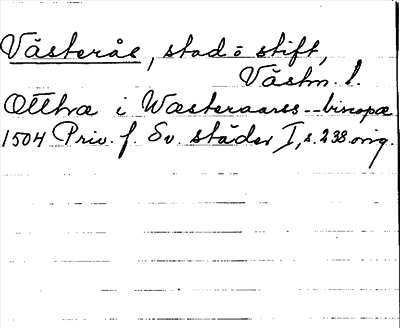 Västerås, stad o stift,
Västm. l.
Otthræ i Wæsteraarss -- biscopæ
1504 Priv. f. Sv. städer I, s. 238 orig.